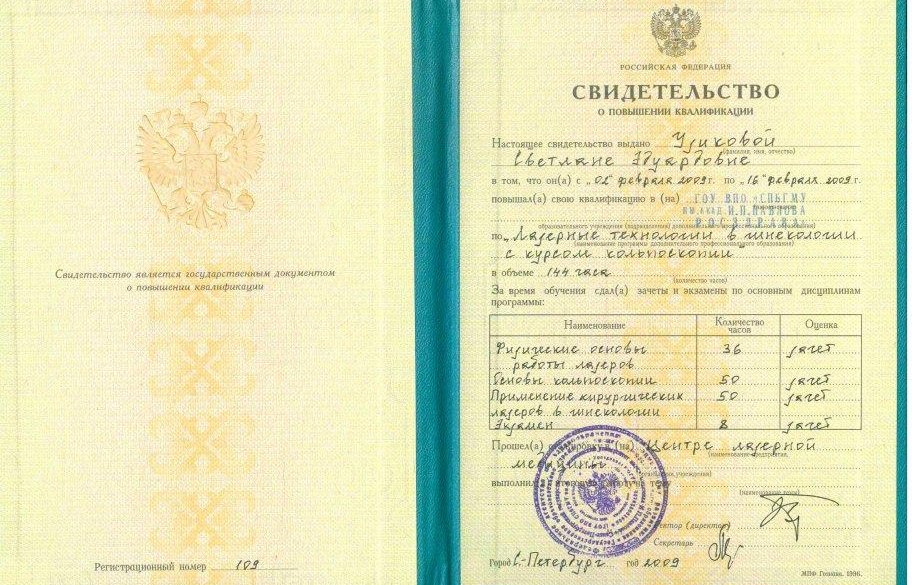 Свидетельство является государственным документом
о повышении квалификации
Регистрационный номер 109
РОССИЙСКАЯ ФЕДЕРАЦИЯ
СВИДЕТЕЛЬСТВО
О ПОВЫШЕНИИ КВАЛИФИКАЦИИ
Настоящее свидетельство выдано Уликовой
(фамилия, имя, отчество)
Светлане Эдуардовне
в том, что он(а) с „02" февраля 2009 г. по „16" февраля 2009 г.
повышал(а) свою квалификацию в (на) ГОУ ВПО «СПбГМУ
(наименование)
им. акад. И.П.ПАВЛОВА
РОСЗДРАВА»
образовательного учреждения (подразделения) дополнительного профессионального образования)
по „Лазерные технологии в гинекологии
(наименование программы дополнительного профессионального образования)
с курсом кольпоскопии"
в объеме 144 часа
(количество часов)
За время обучения сдал(а) зачеты и экзамены по основным дисциплинам
программы:
Наименование Количество часов Оценка
Физические основы 36 зачет
работы лазеров
Основы кольпоскопии 50 зачет
Применение хирургических 50 зачет
лазеров в гинекологии
Экзамен 8 зачет
Прошел(а) стажировку в (на) Центре лазерной
(наименование предприятия,
медицины
организации, учреждения)
выполнил(а) итоговую работу на тему
(наименование темы)
Ректор (директор)
Секретарь
Город С-Петербург год 2009
МПФ Гознака. 1996.